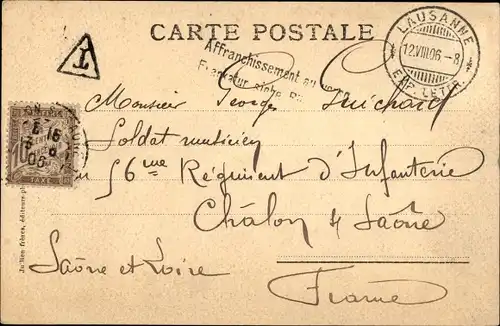 CARTE POSTALE
T
LAUSANNE
12.VIII.06-8
EXP. LETTR.
Affranchissement au verso
Frankatur siehe
Monsieur Georges Guichard
Soldat musicien
au 56me Régiment d'Infanterie
Châlon s/ Saône
Saône et Loire
France
10
TAXE
Jullien frères, éditeurs